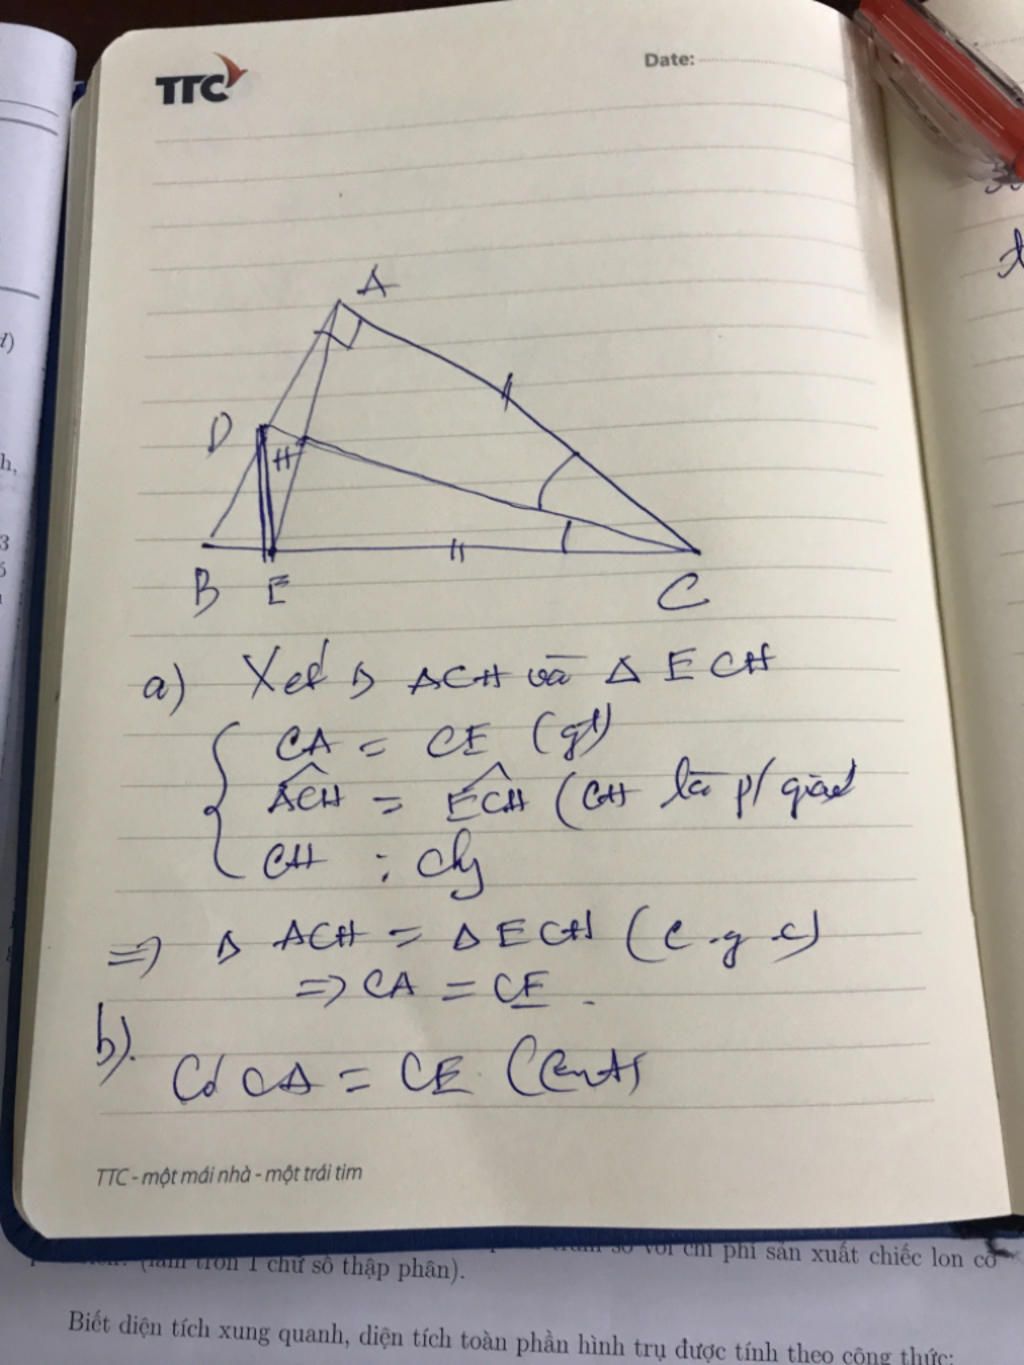 TTC
Date:
A
D
H
B E
C
a) Xét Δ ACH và Δ ECH
CA = CE (gt)
ACH = ECH (CH là p/giác
CH : chg
=> Δ ACH = Δ ECH (c.g.c)
=> CA = CE.
b).
Có CA = CE (cmt)
TTC - một mái nhà - một trái tim
số với chi phí sản xuất chiếc lon có
(làm tròn 1 chữ số thập phân).
Biết diện tích xung quanh, diện tích toàn phần hình trụ được tính theo công thức: